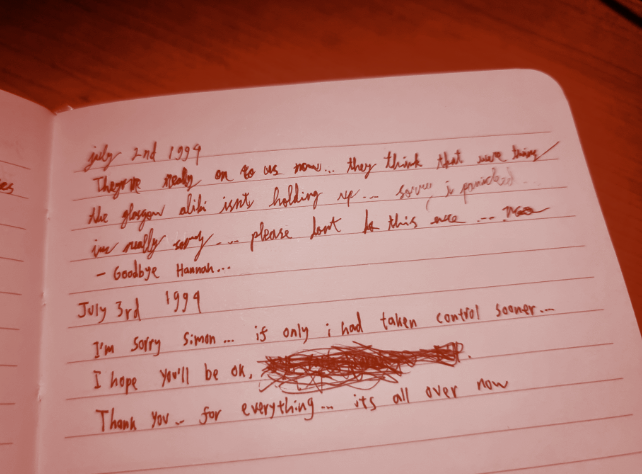 ies
july 2nd 1994
They're really on to us now... they think that were lying
the glasgow alibi isnt holding up... sorry, i panicked.
ive really sorry.... please dont do this
- Goodbye Hannah...
July 3rd 1994
I'm sorry Simon... if only i had taken control sooner...
I hope you'll be ok,
Thank you.. for everything... its all over now